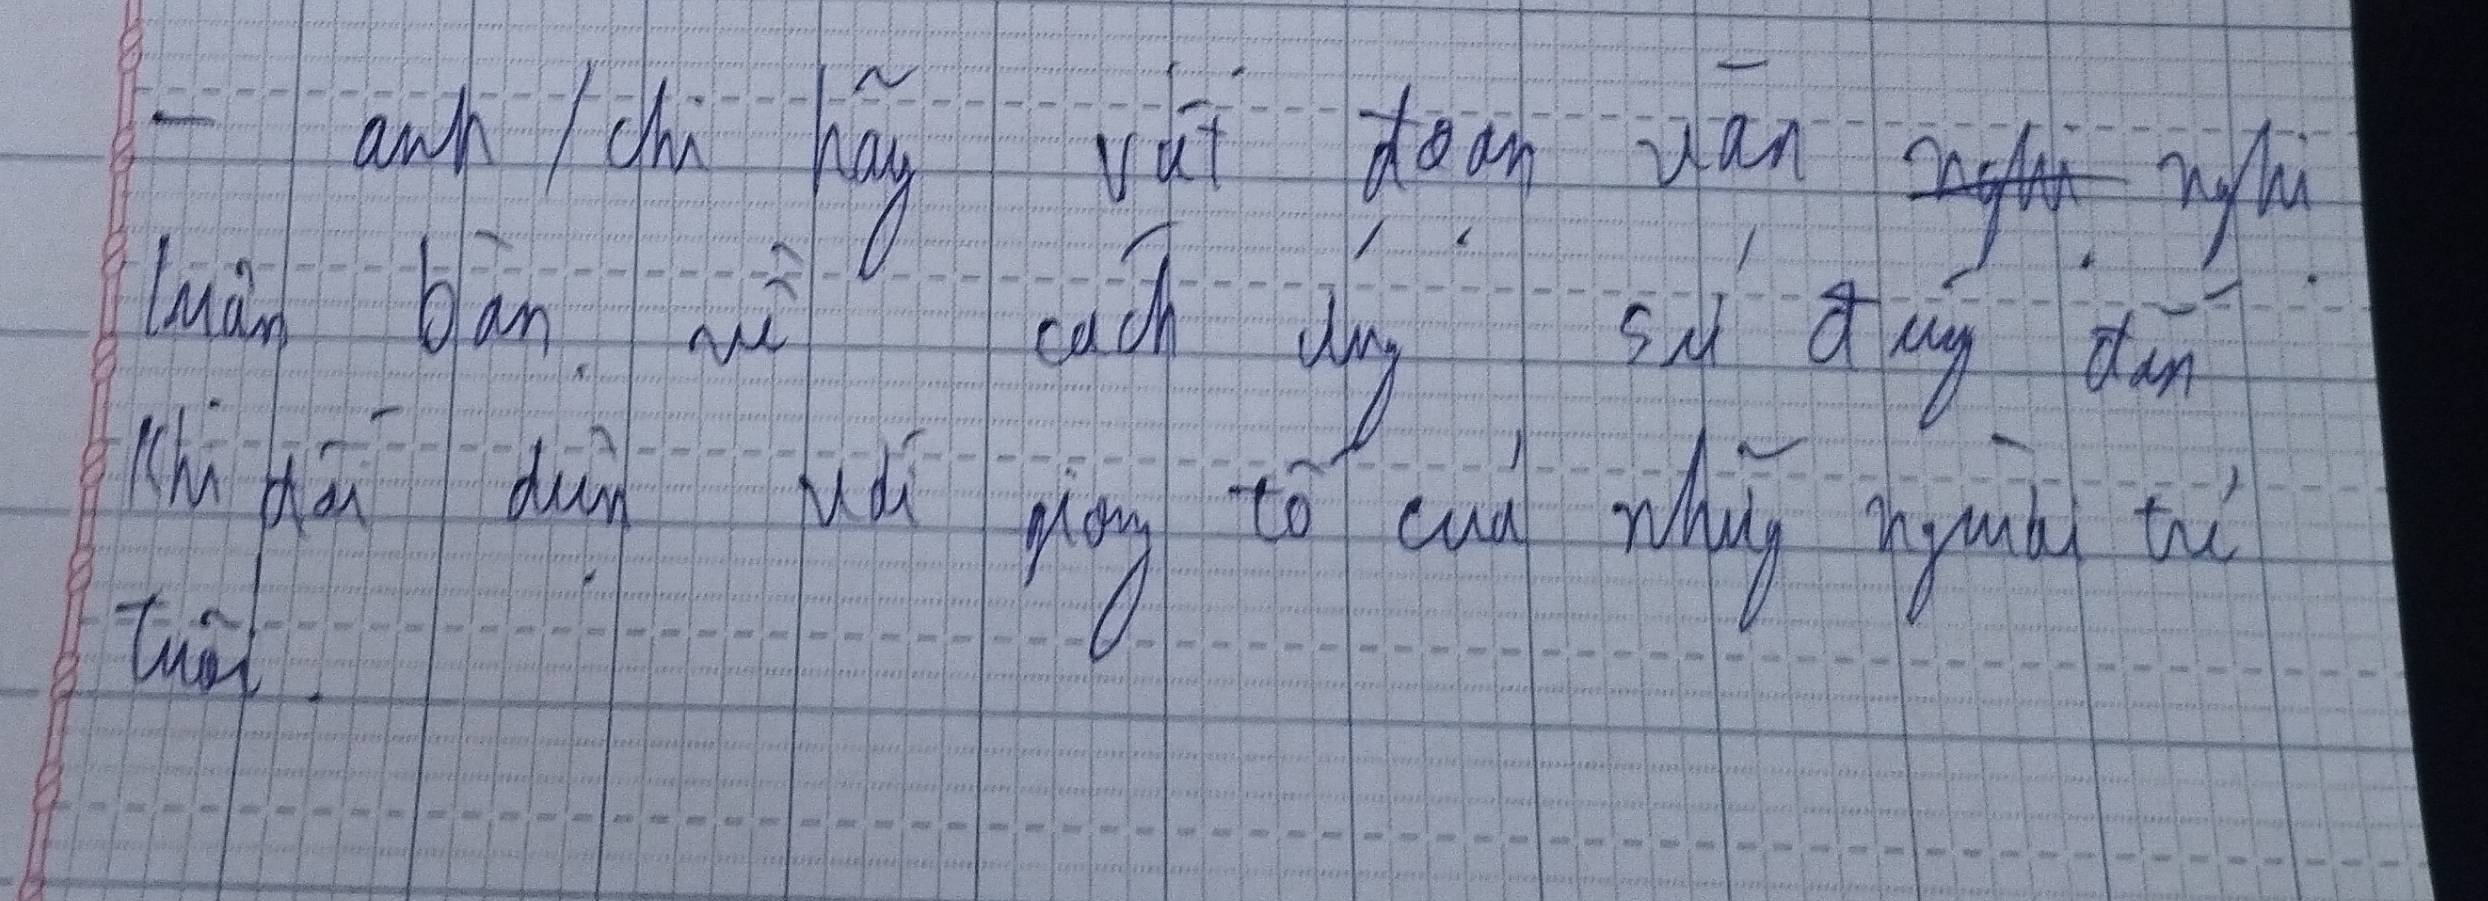 - anh / chị hãy viết đoạn văn nghị
luận bàn về cách ứng sử đúng đắn
khi đối diện với giông tố của những người trẻ
tuổi.